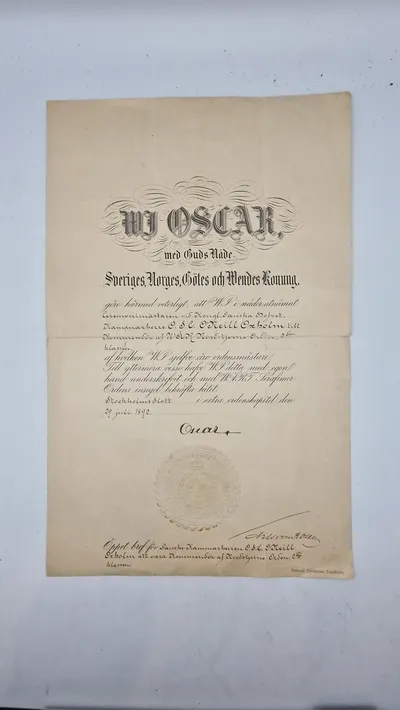 WJ OSCAR,
med Guds Nåde
Sveriges, Norges, Götes och Wendes Konung,
göre härmed veterligt, att WJ i nåder utnämnt
Ceremonimästaren vid Kongl. Danska Hofvet,
Kammarherre O. S. C. O'Neill Oxholm till
Kommendör af W. K. N. Nordstjerne-Orden, 2dra
klassen,
af hvilken WJ sjelfve äro ordensmästare.
Till yttermera visso hafve WJ detta med egen
hand underskrifvit och med W.K.K.M. Serafimer
Ordens insegel bekräfta låtit.
Stockholms Slott i extra ordenskapitel den
29 juli 1892.
Oscar.
Öppet bref för Danske Kammarherren O. S. C. O'Neill
Oxholm att vara Kommendör af Nordstjerne-Orden, 2dra
klassen.